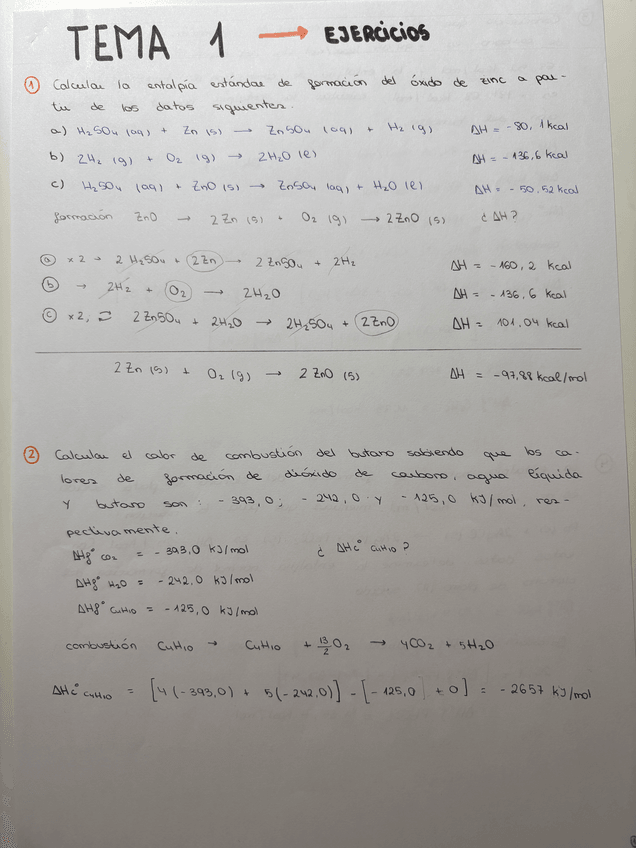 TEMA 1 → EJERCICIOS
① Calcular la entalpía estándar de formación del óxido de zinc a par-
tir de los datos siguientes.
a) H₂SO₄ (aq) + Zn (s) → ZnSO₄ (aq) + H₂ (g) ΔH = -80,1 kcal
b) 2H₂ (g) + O₂ (g) → 2H₂O (l) ΔH = -136,6 kcal
c) H₂SO₄ (aq) + ZnO (s) → ZnSO₄ (aq) + H₂O (l) ΔH = -50,52 kcal
formación ZnO → 2 Zn (s) + O₂ (g) → 2 ZnO (s) ¿ΔH?
ⓐ x2 → 2 H₂SO₄ + 2Zn → 2 ZnSO₄ + 2H₂ ΔH = -160,2 kcal
ⓑ → 2H₂ + O₂ → 2H₂O ΔH = -136,6 kcal
ⓒ x2, 2 ZnSO₄ + 2H₂O → 2H₂SO₄ + 2ZnO ΔH = 101,04 kcal
2 Zn (s) + O₂ (g) → 2 ZnO (s) ΔH = -97,88 kcal/mol
② Calcular el calor de combustión del butano sabiendo que los ca-
lores de formación de dióxido de carbono, agua líquida
y butano son: -393,0; -242,0 y -125,0 KJ/mol, res-
pectivamente.
ΔHf° CO₂ = -393,0 KJ/mol ¿ΔHc° C₄H₁₀?
ΔHf° H₂O = -242,0 KJ/mol
ΔHf° C₄H₁₀ = -125,0 KJ/mol
combustión C₄H₁₀ → C₄H₁₀ + 13/2 O₂ → 4CO₂ + 5H₂O
ΔHc° C₄H₁₀ = [4(-393,0) + 5(-242,0)] - [-125,0 + 0] = -2657 KJ/mol